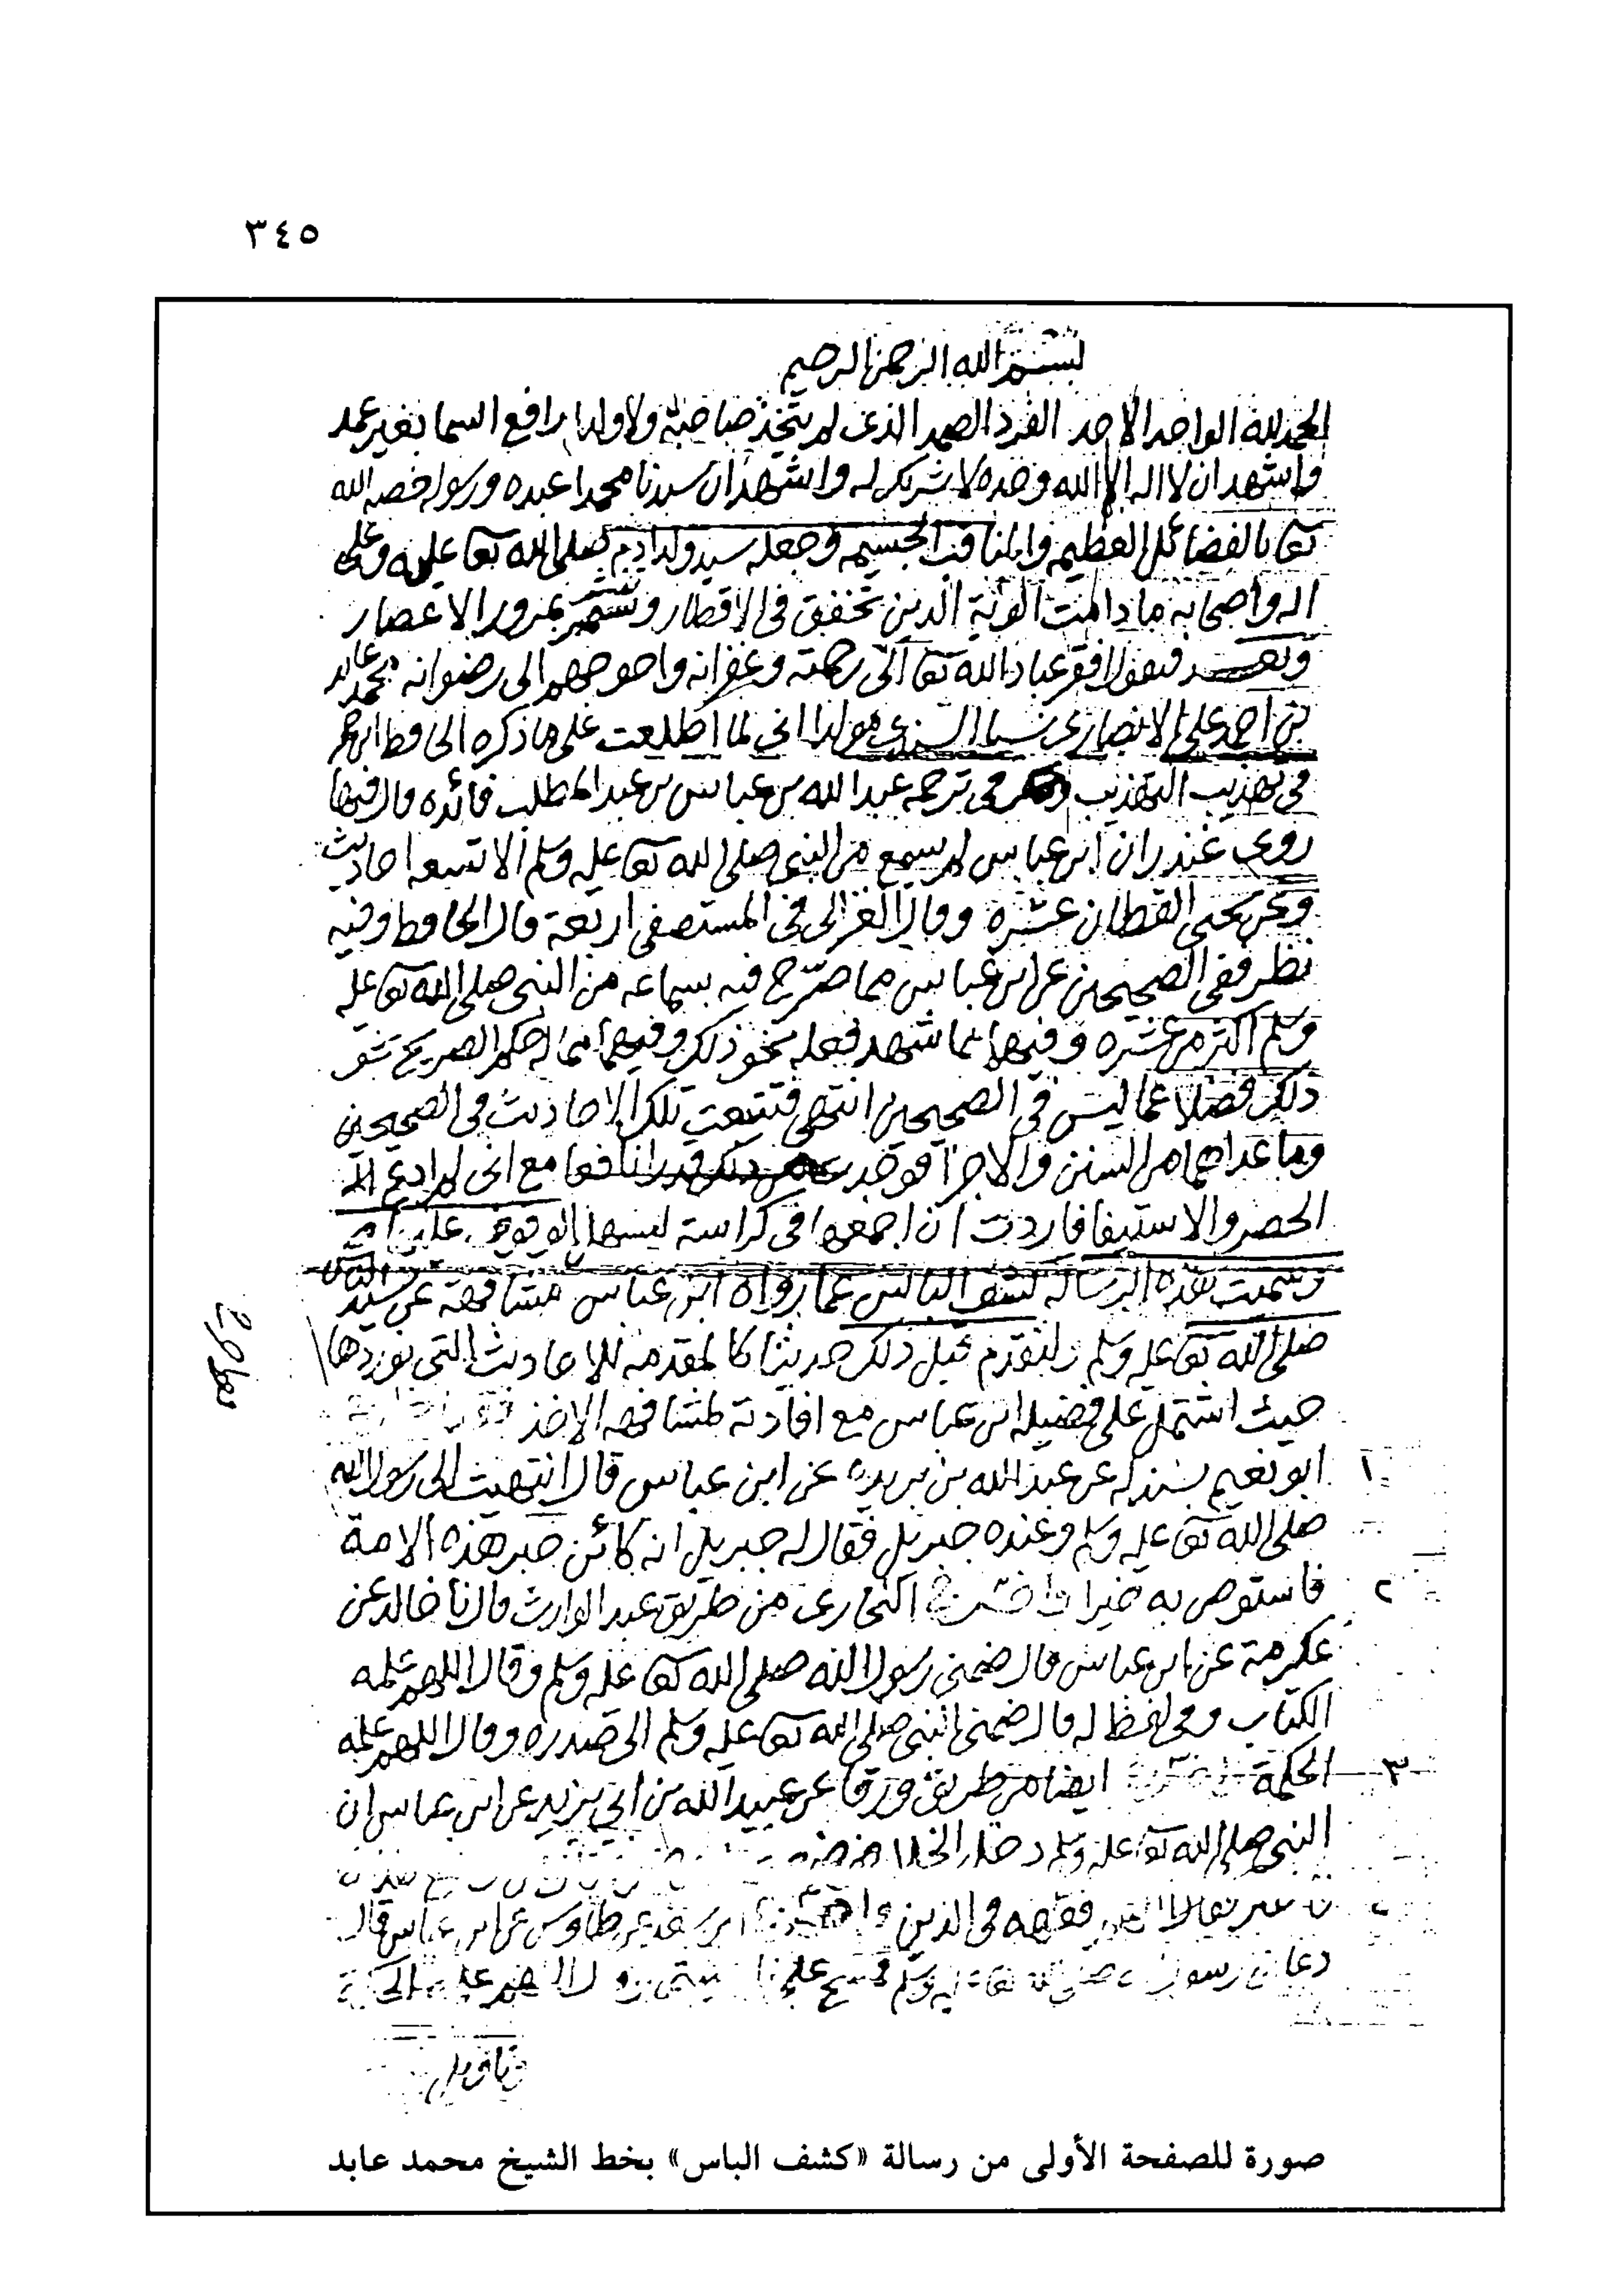 ٣٤٥
بسم الله الرحمن الرحيم
الحمد لله الواحد الاحد الفرد الصمد الذى لم يتخذ صاحبة ولا ولدا رافع السما بغير عمد
واشهد ان لا اله الا الله وحده لا شريك له واشهد ان سيدنا محمدا عبده ورسوله خصه الله
تعا بالفضائل العظيمه والمناقب الجسيمه وجعله سيد ولد ادم صلى الله تعا عليه وعلى
اله واصحابه ما دامت الوية الدين تخفق فى الاقطار وتنتشر بمرور الاعصار
وبعد فيقول افقر عباد الله تعا الى رحمته وغفرانه واحوجهم الى رضوانه محمد عابد
بن احمد على الانصارى نسبا السندى مولدا انى لما اطلعت على ما ذكره الحافظ ابن حجر
فى تهذيب التهذيب فى ترجمه عبد الله بن عباس بن عبد المطلب فائده قال فيها
روى غندر ان ابن عباس لم يسمع من النبى صلى الله تعا عليه وسلم الا تسعه احاديث
وعن يحيى القطان عشره وقال الغزالى فى المستصفى اربعة قال الحافظ وفيه
نظر ففى الصحيحين عن ابن عباس مما صرح فيه بسماعه من النبى صلى الله تعا عليه
وسلم اكثر من عشره وفيهما مما شهد فعله نحو ذلك وفيهما مما له حكم الصريح نحو
ذلك فضلا عما ليس فى الصحيحين انتهى فتتبعت تلك الاحاديث فى الصحيحين
وما عداهما من السنن والاجزا فوجدت من ذلك قدرا نافعا مع انى لم ادع
الحصر والاستيفا فاردت ان اجمعها فى كراسة ليسهل الوقوف عليها
وسميت هذه الرساله كشف الباس عما رواه ابن عباس مشافهة عن سيد الناس
صلى الله تعا عليه وسلم ولنقدم قبل ذلك حديثا كالمقدمه للاحاديث التى نوردها
حيث اشتمل على فضيله ابن عباس مع افادته لمشافهه الاخذ
١ ابو نعيم بسنده عن عبد الله بن بريده عن ابن عباس قال انتهيت الى رسول الله
صلى الله تعا عليه وسلم وعنده جبريل فقال له جبريل انه كائن حبر هذه الامة
٢ فاستوص به خيرا واخرج البخارى من طريق عبد الوارث قال نا خالد عن
عكرمة عن ابن عباس قال ضمنى رسول الله صلى الله تعا عليه وسلم وقال اللهم علمه
الكتاب وفى لفظ له قال ضمنى النبى صلى الله تعا عليه وسلم الى صدره وقال اللهم علمه
٣ الحكمة ايضا من طريق ورقا عن عبيد الله بن ابى يزيد عن ابن عباس ان
النبى صلى الله تعا عليه وسلم دخل الخلا
فقال اللهم فقهه فى الدين عن طاوس عن ابن عباس قال
دعانى رسول الله صلى الله تعا عليه وسلم فمسح على ناصيتى وقال اللهم علمه الحكمة
وتاويل
صورة للصفحة الأولى من رسالة «كشف الباس» بخط الشيخ محمد عابد